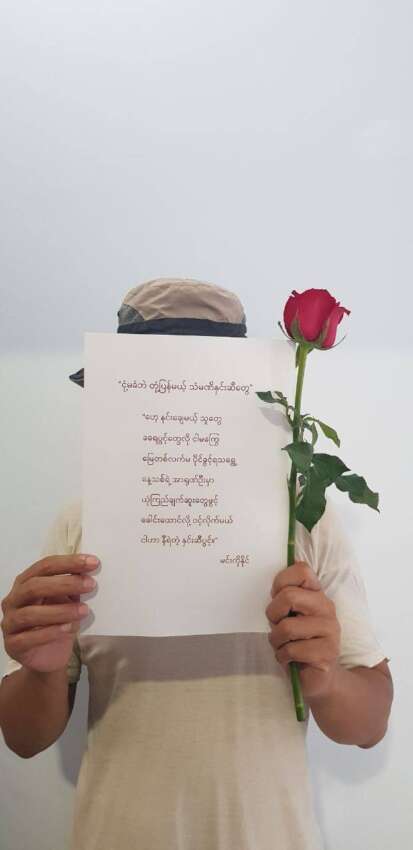 "ငုံ့မခံဘဲ တုံ့ပြန်မယ့် သံမဏိနှင်းဆီတွေ"
"ဟေ့ နင်းချေမယ့် သူတွေ
ခရေပွင့်တွေလို ငါမကြွေ
မြေတစ်လက်မ ပိုင်ခွင့်ရသရွေ့
နေ့သစ်ရဲ့ အာရုဏ်ဦးမှာ
ယုံကြည်ချက်ဆူးတွေဖွင့်
ခေါင်းထောင်လို့ ပွင့်လိုက်မယ်
ငါဟာ နီရဲတဲ့ နှင်းဆီပွင့်။"
မင်းကိုနိုင်